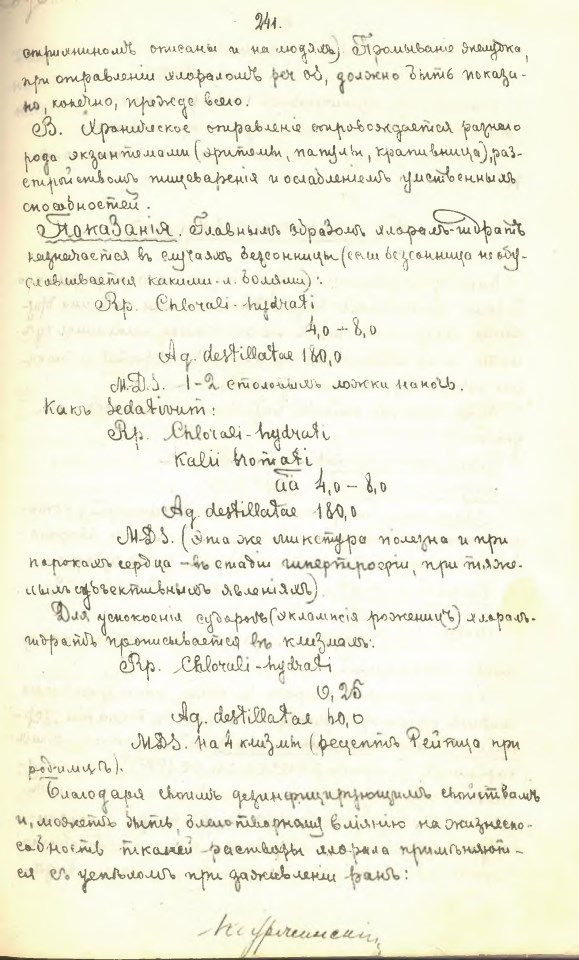 241.
стрихниномъ описаны и на людяхъ). Промываніе желудка,
при отравленіи хлораломъ per os, должно быть показа-
но, конечно, прежде всего.
В. Хроническое отравленіе сопровождается разнаго
рода экзантемами (эритемы, папулы, крапивница), раз-
стройствомъ пищеваренія и ослабленіемъ умственныхъ
способностей.
Показанія. Главнымъ образомъ хлоралъ-гидратъ
назначается въ случаяхъ безсонницы (если безсонница не обу-
словливается какими-л. болями):
Rp. Chlorali-hydrati
4,0 – 8,0
Aq. destillatae 180,0
M.D.S. 1-2 столовыхъ ложки на ночь.
Какъ Sedativum:
Rp. Chlorali-hydrati
Kalii bromati
āā 4,0 – 8,0
Aq. destillatae 180,0
M.D.S. (Эта же микстура полезна и при
порокахъ сердца – въ стадіи гипертрофіи, при тяже-
лыхъ субъективныхъ явленіяхъ).
Для успокоенія судорогъ (эклампсія роженицъ) хлоралъ-
гидратъ прописывается въ клизмахъ:
Rp. Chlorali-hydrati
0,25
Aq. destillatae 60,0
M.D.S. на 4 клизмы (рецептъ Рейтца при
родимцѣ).
Благодаря своимъ дезинфицирующимъ свойствамъ
и, можетъ быть, благотворному вліянію на жизнеспо-
собность тканей растворы хлорала примѣняют-
ся съ успѣхомъ при заживленіи ранъ: